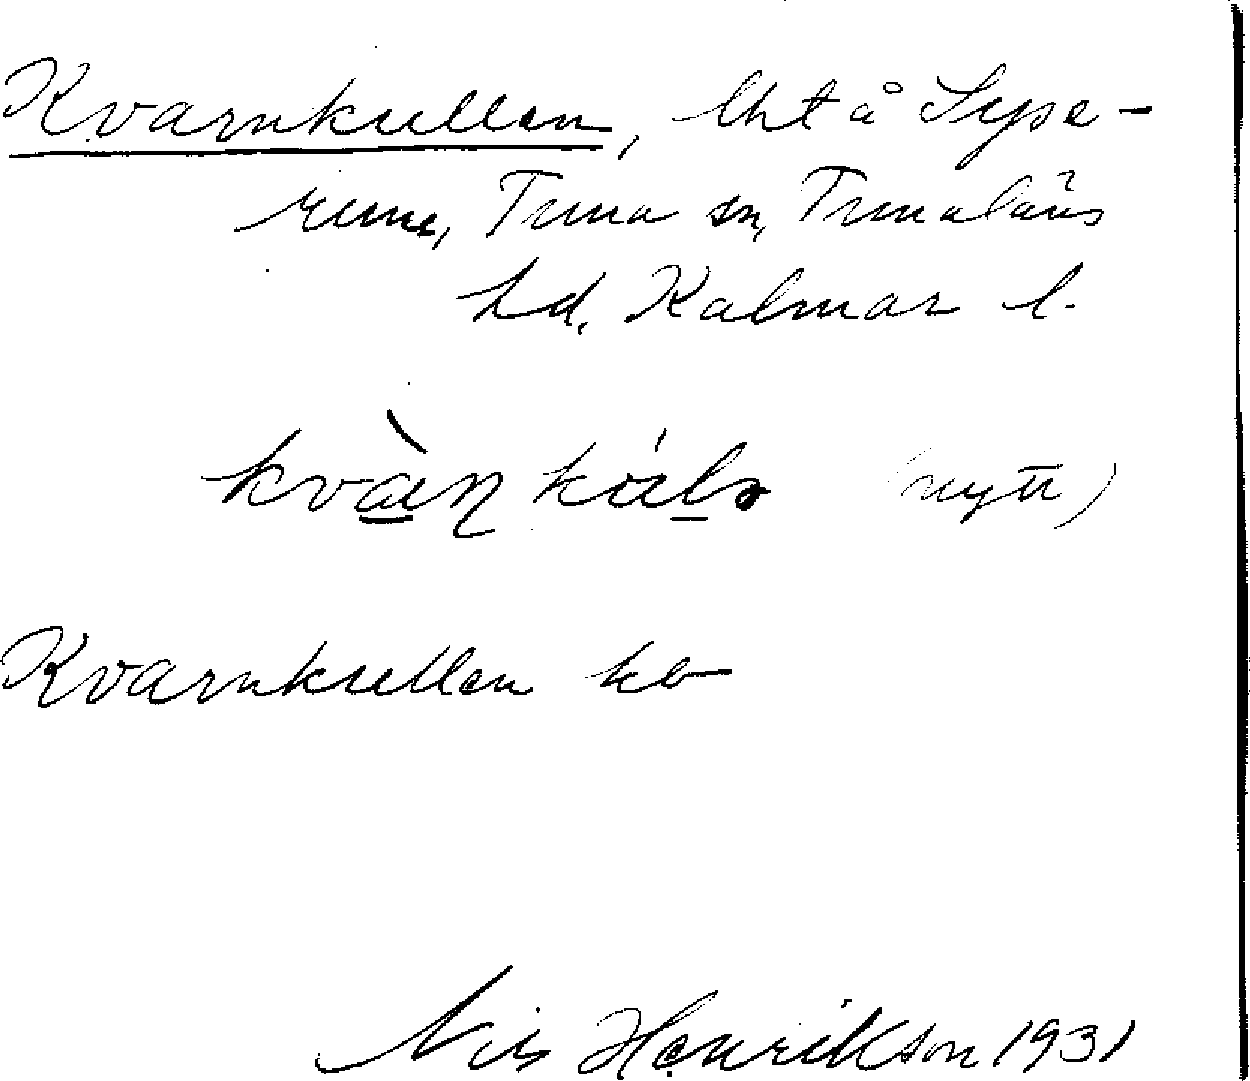 Kvarnkullen, lht å Sype-
rum, Tuna sn, Tunaläns
hd. Kalmar l.
(nytt)
Kvarnkullen kb
Nils Henrikson 1931